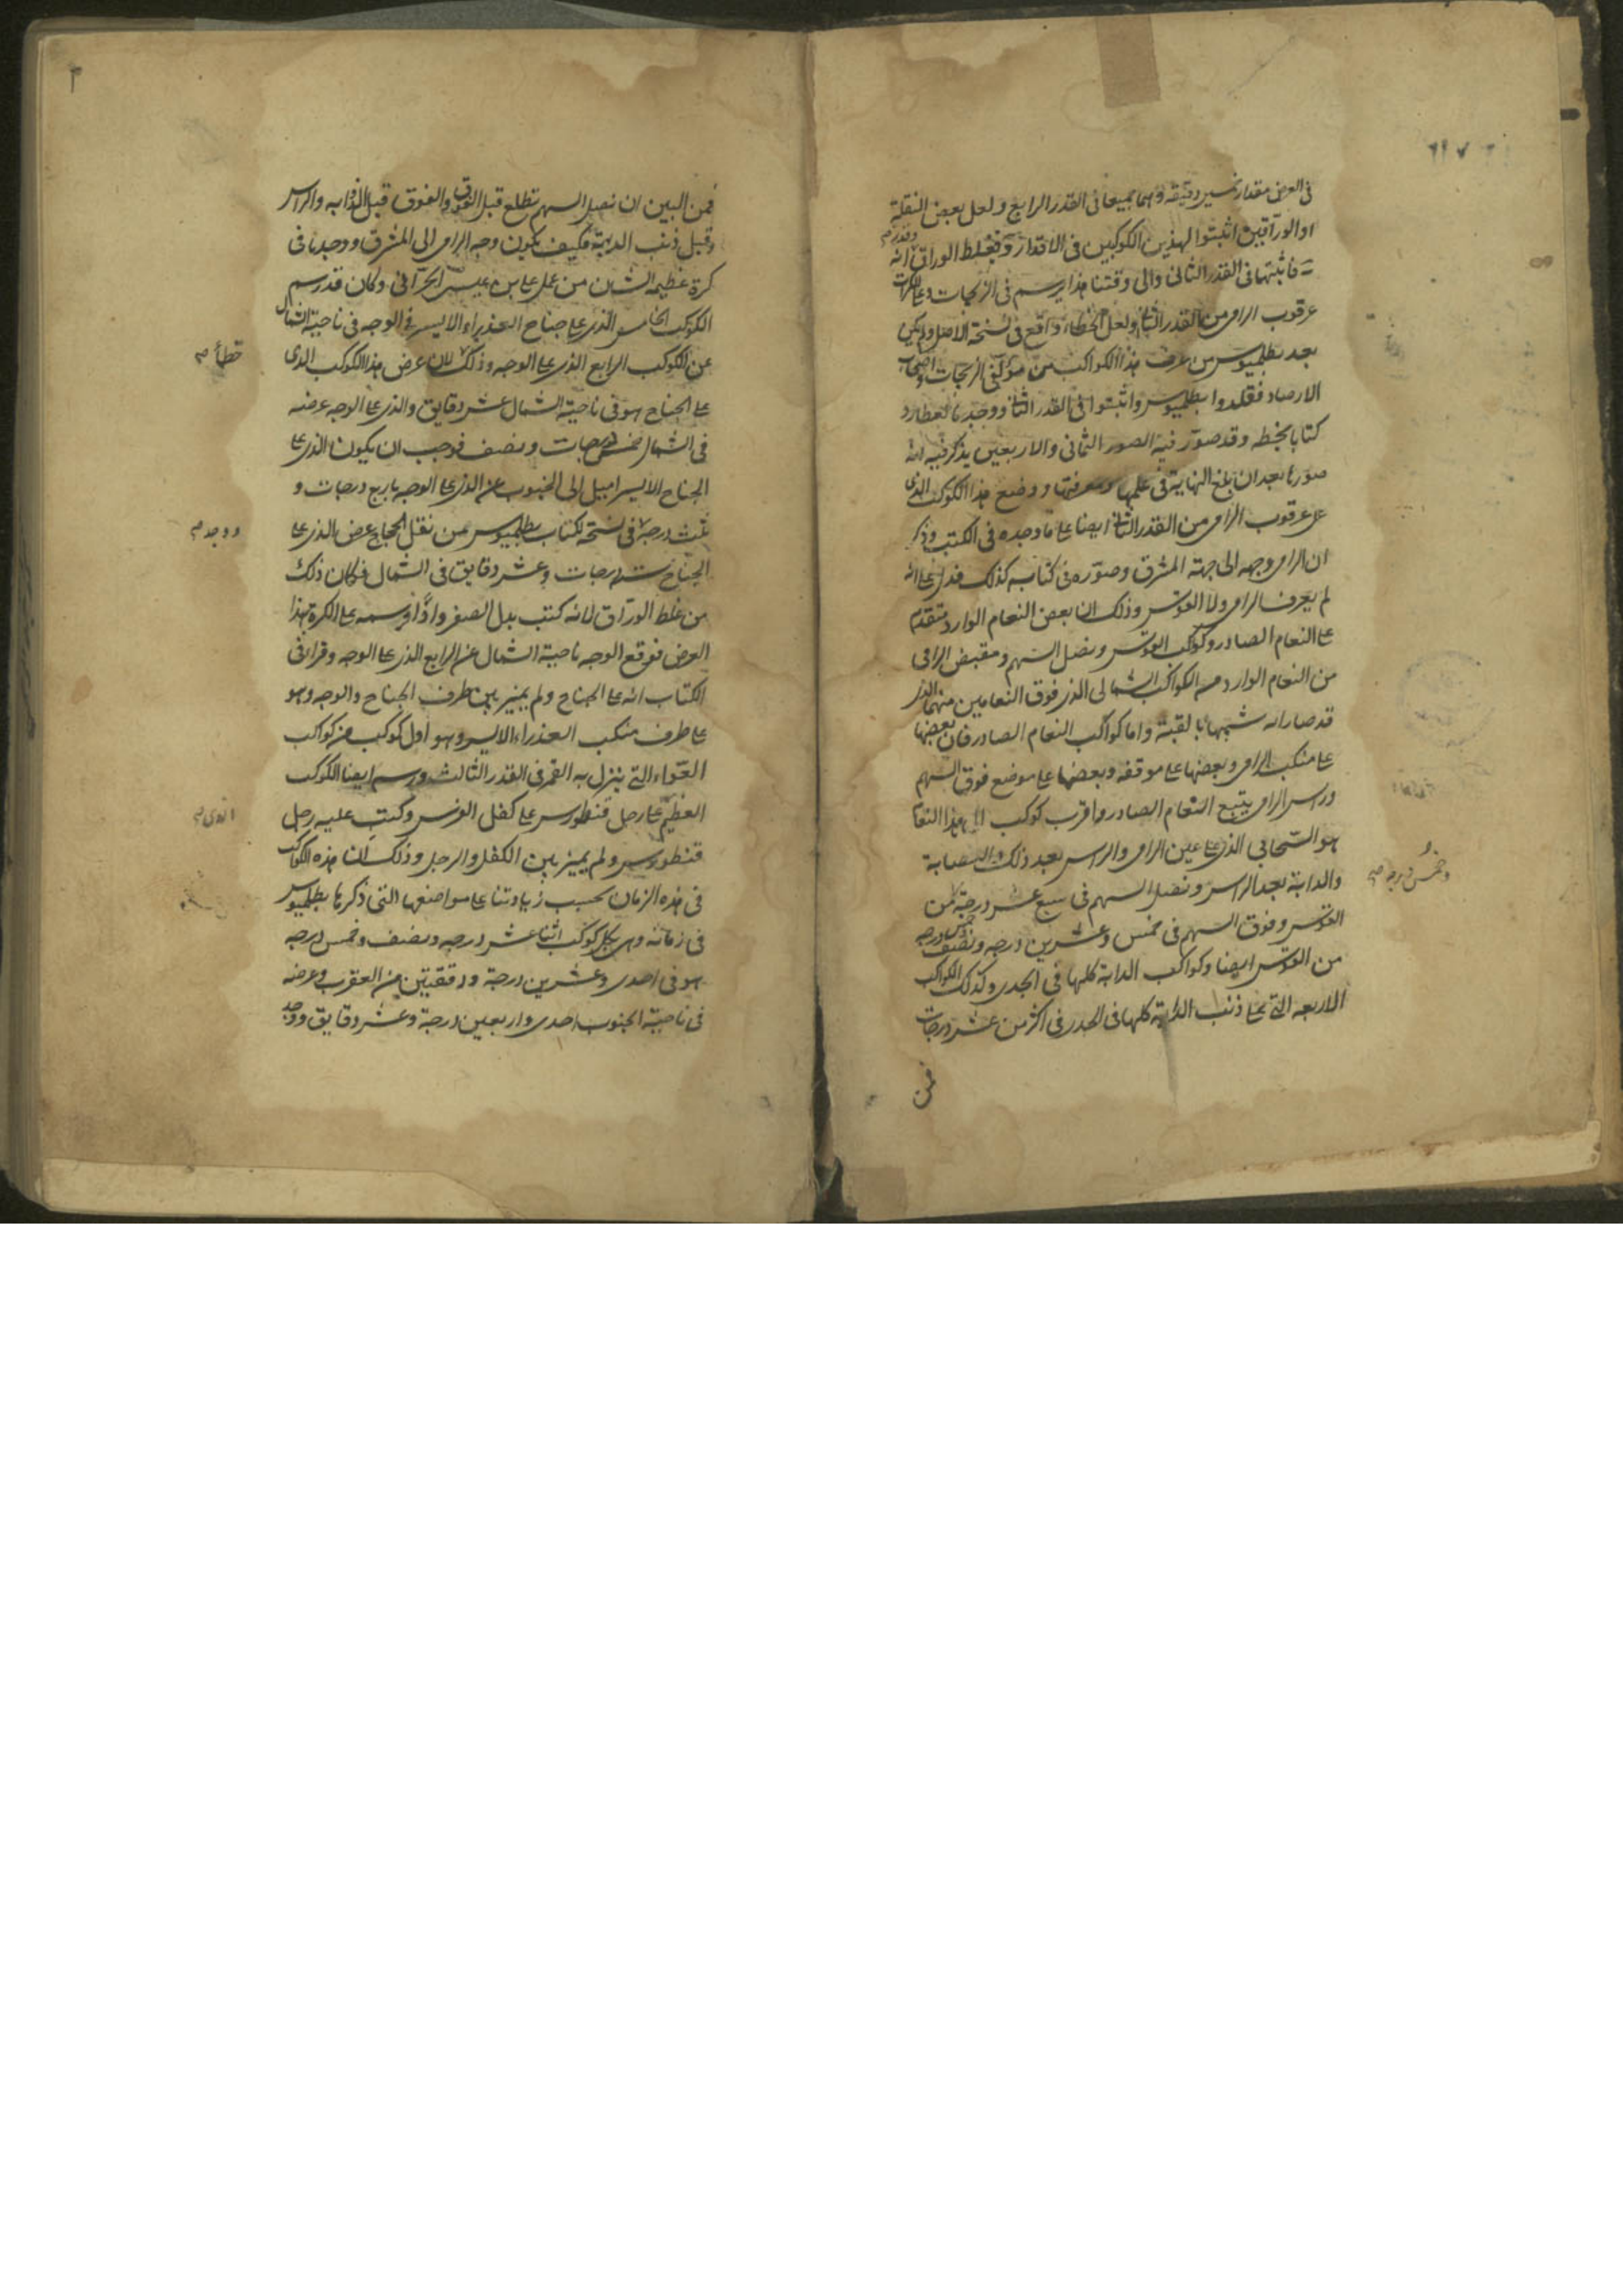 فى العرض مقدار عشرين دقيقه وهما جميعا فى القدر الرابع ولعل بعض النقلة
او الوراقين اثبتوا لهذين الكوكبين فى الاقدار وقدره فغلط الوراق انه
فاثبتها فى القدر الثانى والى وقتنا هذا يرسم فى الزيجات وعلى الكرات
عرقوب الرامى من القدر الثانى ولعل الخطاء واقع فى نسخة الاصل ولم يكن
بعد بطلميوس من عرف هذا الكواكب من مؤلفى الزيجات واصحاب
الارصاد فقلدوا بطلميوس واثبتوا فى القدر الثانى ووجدنا لعطارد
كتابا بخطه وقد صور فيه الصور الثمانى والاربعين يذكر فيه انه
صورها بعد ان بلغ النهاية فى علمها ومعرفتها ووضع هذا الكوكب الذى
على عرقوب الرامى من القدر الثانى ايضا على ما وجده فى الكتب وذكر
ان الرامى وجهه الى جهة المشرق وصوره فى كتابه كذلك فدل على انه
لم يعرف الرامى ولا القوس وذلك ان بعض النعام الوارد متقدم
على النعام الصادر وكوكب القوس ونصل السهم ومقبض الرامى
من النعام الوارد مع الكواكب الشمالى الذى فوق النعامين منهما الذى
قد صارا له شبيها بالقبة واما كواكب النعام الصادر فان بعضها
على منكب الرامى وبعضها على موقفه وبعضها على موضع فوق السهم
وراس الرامى يتبع النعام الصادر واقرب كوكب الى هذا النعام
هو السحابى الذى على عين الرامى والراس بعد ذلك والعصابة
والدابة بعد الراس ونصل السهم فى سبع عشر درجة من
وخمس درجه صح
القوس وفوق السهم فى خمس وعشرين درجه ونصف
من القوس ايضا وكواكب الدابة كلها فى الجدى وكذلك الكواكب
الاربعه التى على ذنب الدابة كلها فى الجدى فى اكثر من عشر درجات
فمن
فمن البين ان نصل السهم تطلع قبل الفوق والفوق قبل الذؤابه والراس
وقبل ذنب الدابة فكيف يكون وجه الرامى الى المشرق ووجدنا فى
كرة عظيمه الشان من عمل على بن عيسى الحرانى وكان قد رسم
الكوكب الخامس الذى على جناح العذراء الايسر فى الوجه فى ناحية الشمال
خطأ صح
عن الكوكب الرابع الذى على الوجه وذلك لان عرض هذا الكوكب الذى
على الجناح هو فى ناحية الشمال عشر دقايق والذى على الوجه عرضه
فى الشمال خمس درجات ونصف فوجب ان يكون الذى على
الجناح الايسر اميل الى الجنوب عن الذى على الوجه باربع درجات و
ووجد صح
ثلث درجة فى نسخة لكتاب بطلميوس من نقل الحجاج عرض الذى على
الجناح ست درجات وعشر دقايق فى الشمال فكان ذلك
من غلط الوراق لانه كتب بدل الصفر واوا ورسمه على الكرة بهذا
العرض فوقع الوجه ناحية الشمال عن الرابع الذى على الوجه وقرا فى
الكتاب انه على الجناح ولم يميز بين طرف الجناح والوجه وهو
على طرف منكب العذراء الايسر وهو اول كوكب من كواكب
العواء التى ينزل به القمر فى القدر الثالث ورسم ايضا الكوكب
الذى صح
العظيم على رجل قنطورس على كفل الفرس وكتب عليه رجل
قنطورس ولم يميز بين الكفل والرجل وذلك ان هذه الكواكب
فى هذه الزمان بحسب زيادتنا على مواضعها التى ذكرها بطلميوس
فى زمانه وهى بكل كوكب اثنا عشر درجه ونصف وخمس درجه
هو فى احدى وعشرين درجة ودقيقتين من العقرب وعرضه
فى ناحية الجنوب احدى واربعين درجة وعشر دقايق ووجد